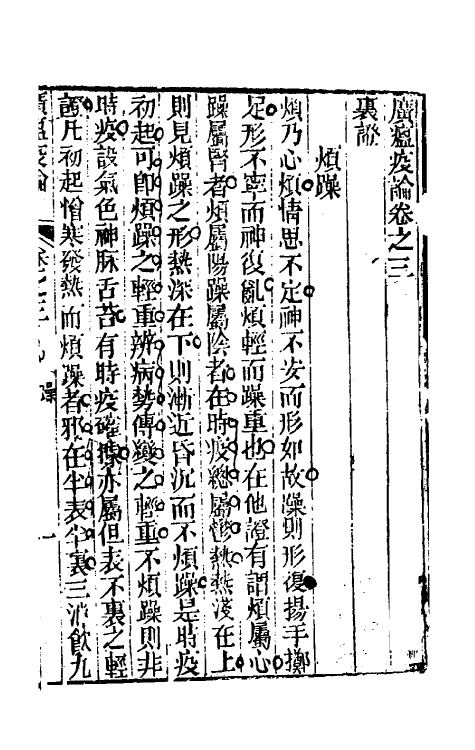 廣瘟疫論卷之三
裏證
煩躁
煩乃心煩情思不定神不安而形如故躁則形復揚手擲
足形不寧而神復亂煩輕而躁重也在他證有謂煩屬心
躁屬腎者煩屬陽躁屬陰者在時疫總屬熱淺在上
則見煩躁之形熱深在下則漸近昏沉而不煩躁是時疫
初起可卽煩躁之輕重辨病勢傳變之輕重不煩躁則非
時疫設氣色神脉舌苔有時疫確據亦屬但表不裏之輕
證凡初起憎寒發熱而煩躁者邪在半表半裏三消飲九
廣瘟疫論 卷之三 躁 一